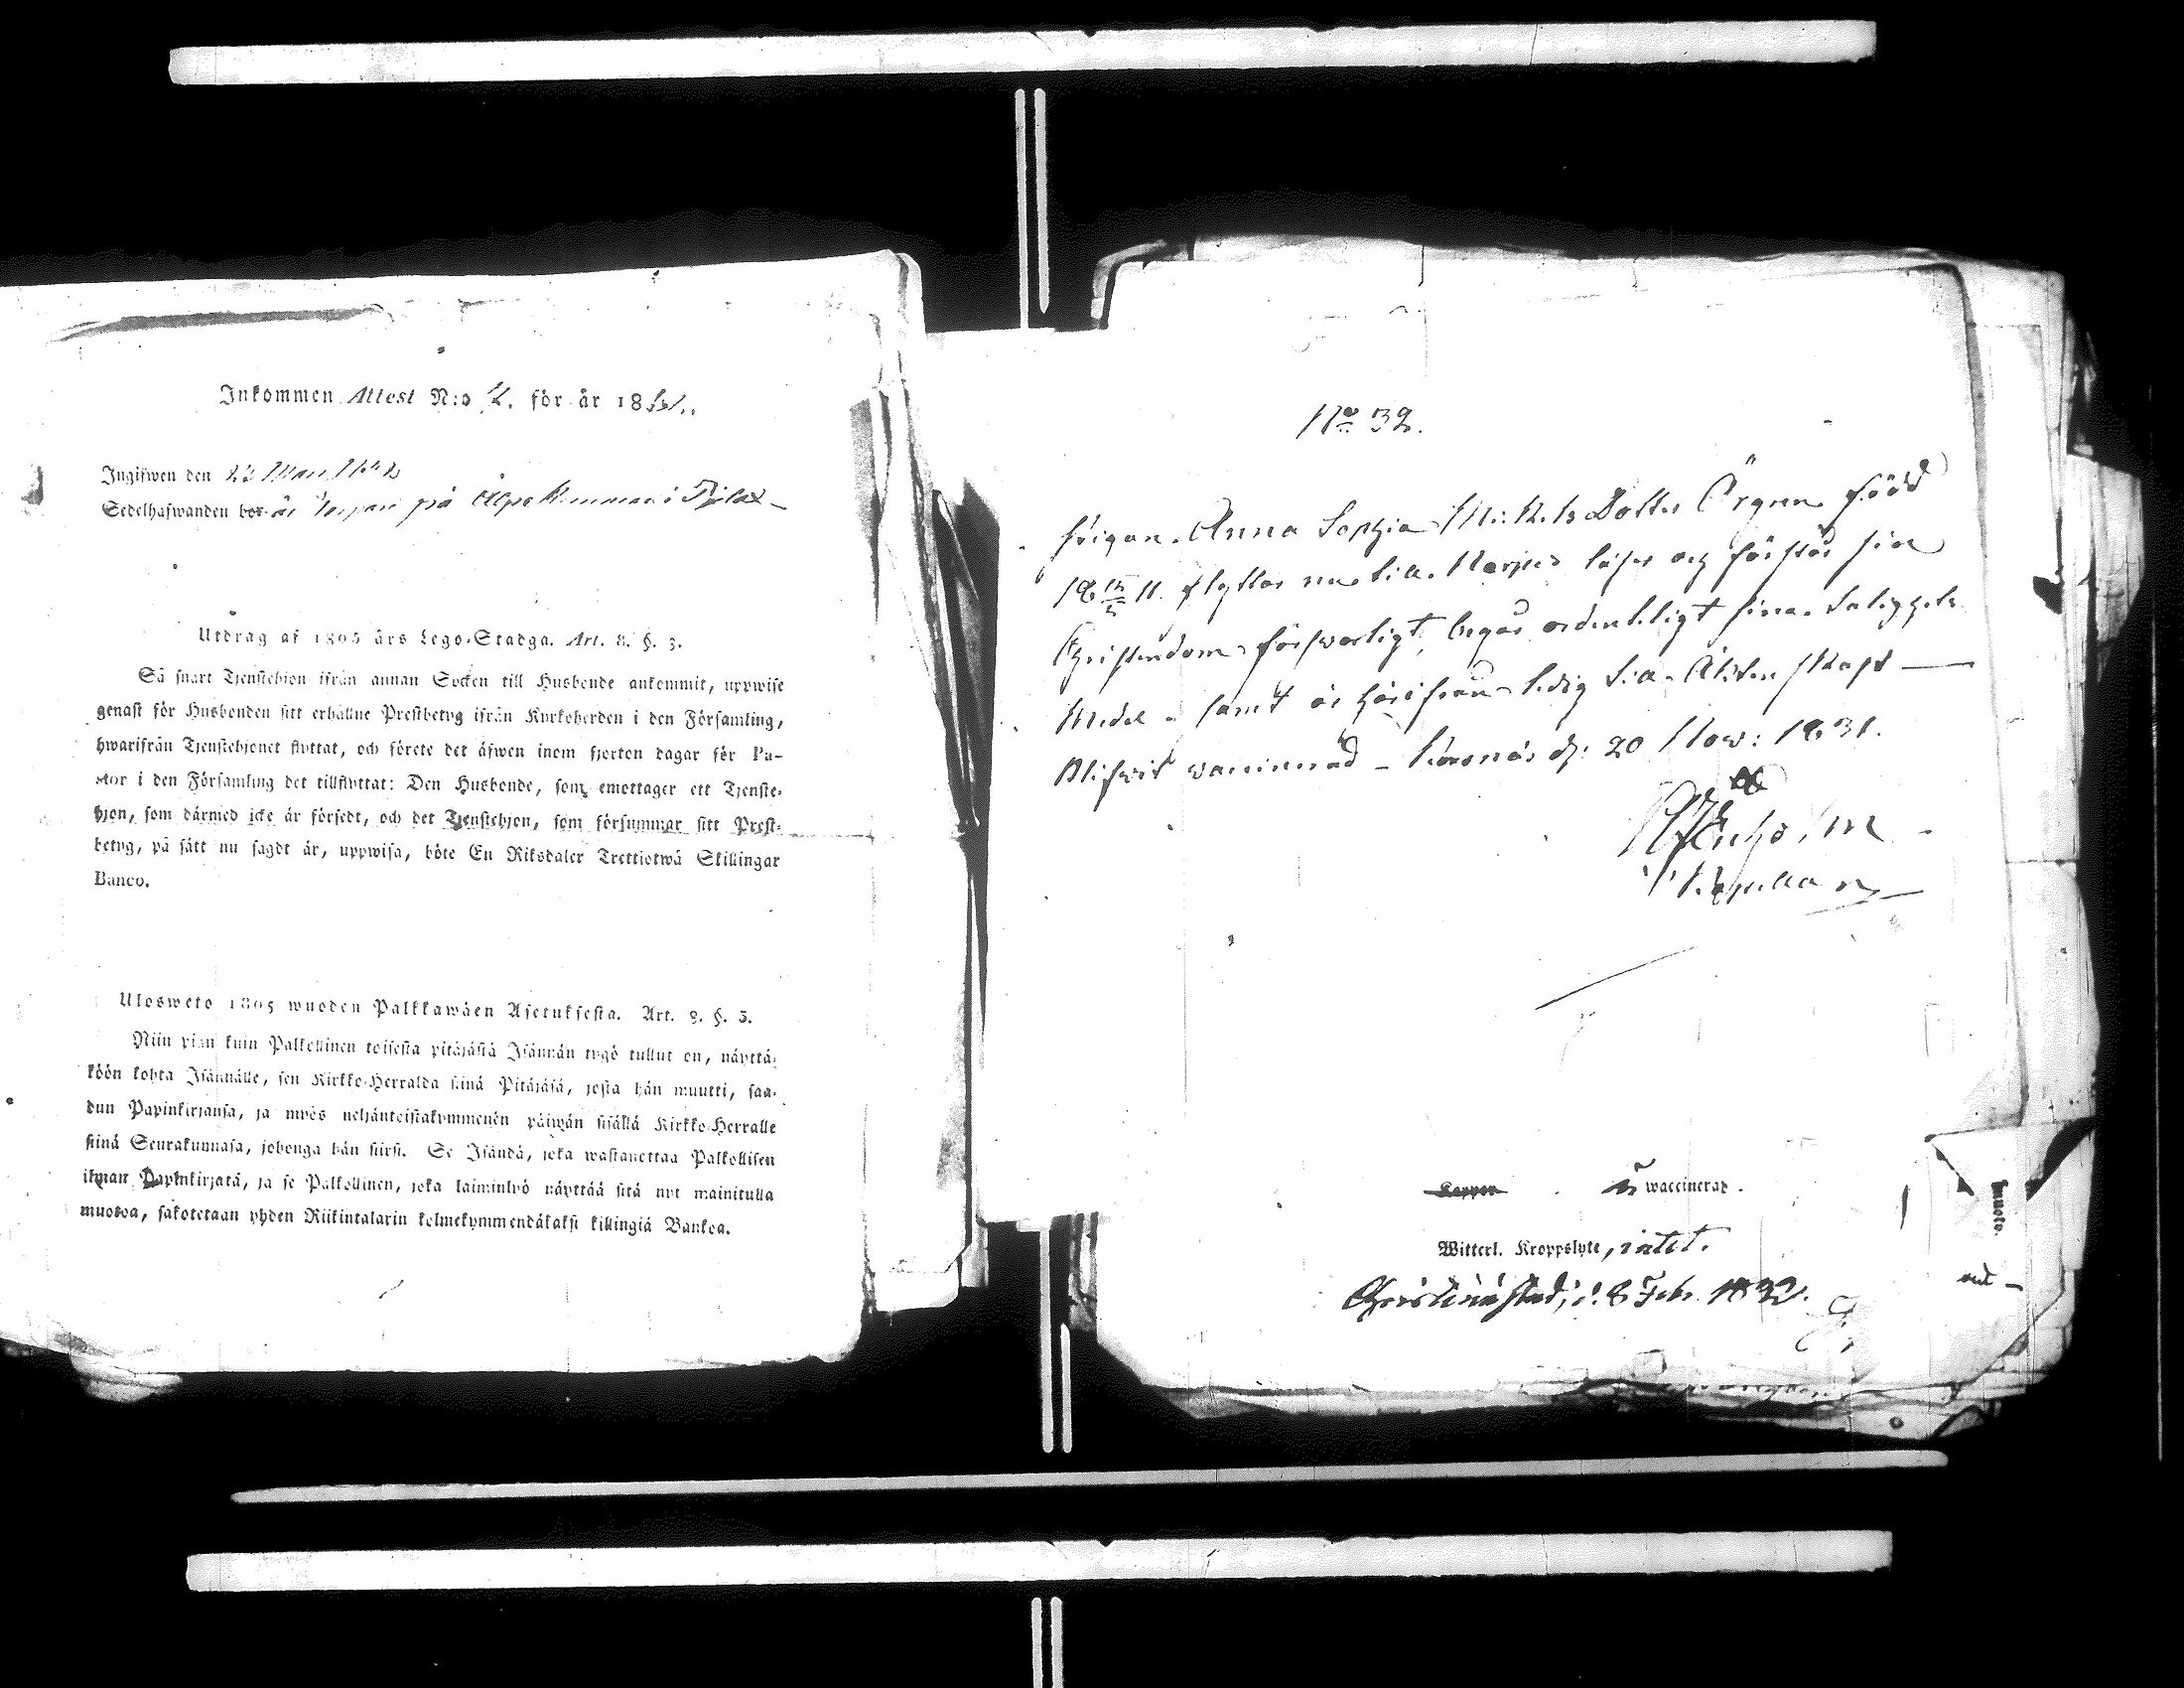 Inkommen Attest N:o för år 18
Ingifwen den 22 Mars
Sedelhafwanden bor är på i
Utdrag af 1805 års Lego-Stadga. Art. 8. §. 3.
Så snart Tjenstehjon ifrån annan Socken till Husbonde ankommit, uppwise
genast för Husbonden sitt erhållne Prestbetyg ifrån Kyrkoherden i den Församling,
hwarifrån Tjenstehjonet flyttat, och förete det äfwen inom fjorton dagar för Pa-
stor i den Församling det tillflyttat: Den Husbonde, som emottager ett Tjenste-
hjon, som därmed icke är försedt, och det Tjenstehjon, som försummar sitt Prest-
betyg, på sätt nu sagdt är, uppwisa, böte En Riksdaler Trettiotwå Skillingar
Banco.
Ulosweto 1805 wuoden Palkkawäen Asetuksesta. Art. 8. §. 3.
Niin pian kuin Palkollinen toisesta pitäjästä Isännän tygö tullut on, näyttä-
köön kohta Isännälle, sen Kirkko-Herralda siinä Pitäjäsä, josta hän muutti, saa-
dun Papinkirjansa, ja myös neljäntoistakymmenen päiwän sisällä Kirkko-Herralle
siinä Seurakunnasa, johonga hän siirsi. Se Isändä, joka wastanottaa Palkollisen
ilman Papinkirjatä, ja se Palkollinen, joka laiminlyö näyttää sitä nyt mainitulla
muotoa, sakotetaan yhden Riikintalarin kolmekymmendäkaksi killingiä Bankoa.
No 32.
Pigan Anna Sophia Mickels Dotter Örgren född
18 11. flyttar nu till Närpes läser och förstår sin
Christendom förswarligt, begår ordentligt sina Salighets
Medel samt är härifrån ledig till Äktenskap —
Blifwit waccinerad — Korsnäs d: 20 Now: 1831.
Kapellan
Koppor är waccinerad.
Witterl. Kroppslyte, intet.
Christinæstad, d. 8 Febr. 1832.
muoto.